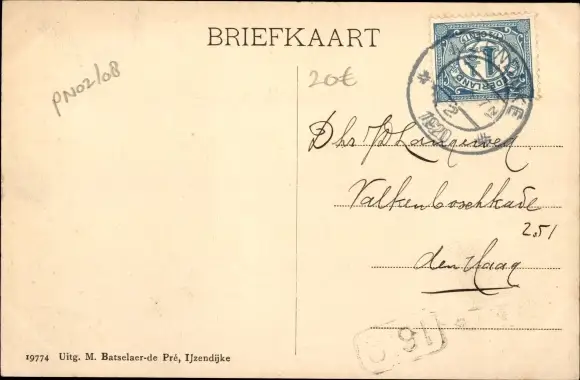 BRIEFKAART
PN02/08
20€
1920
Dhr
Valkenboschkade
251
den Haag
19774 Uitg. M. Batselaer-de Pré, IJzendijke